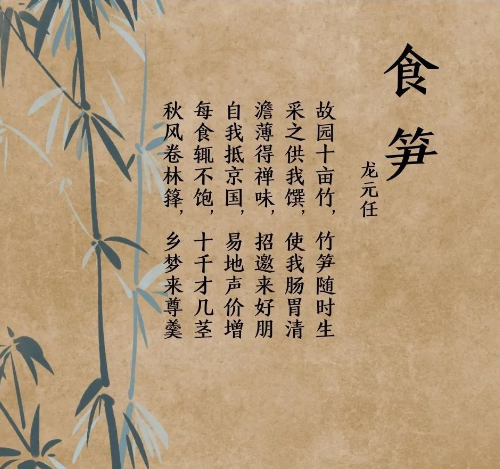 食笋
龙元任
故园十亩竹，竹笋随时生
采之供我馔，使我肠胃清
澹薄得禅味，招邀来好朋
自我抵京国，易地声价增
每食辄不饱，十千才几茎
秋风卷林箨，乡梦来尊羹